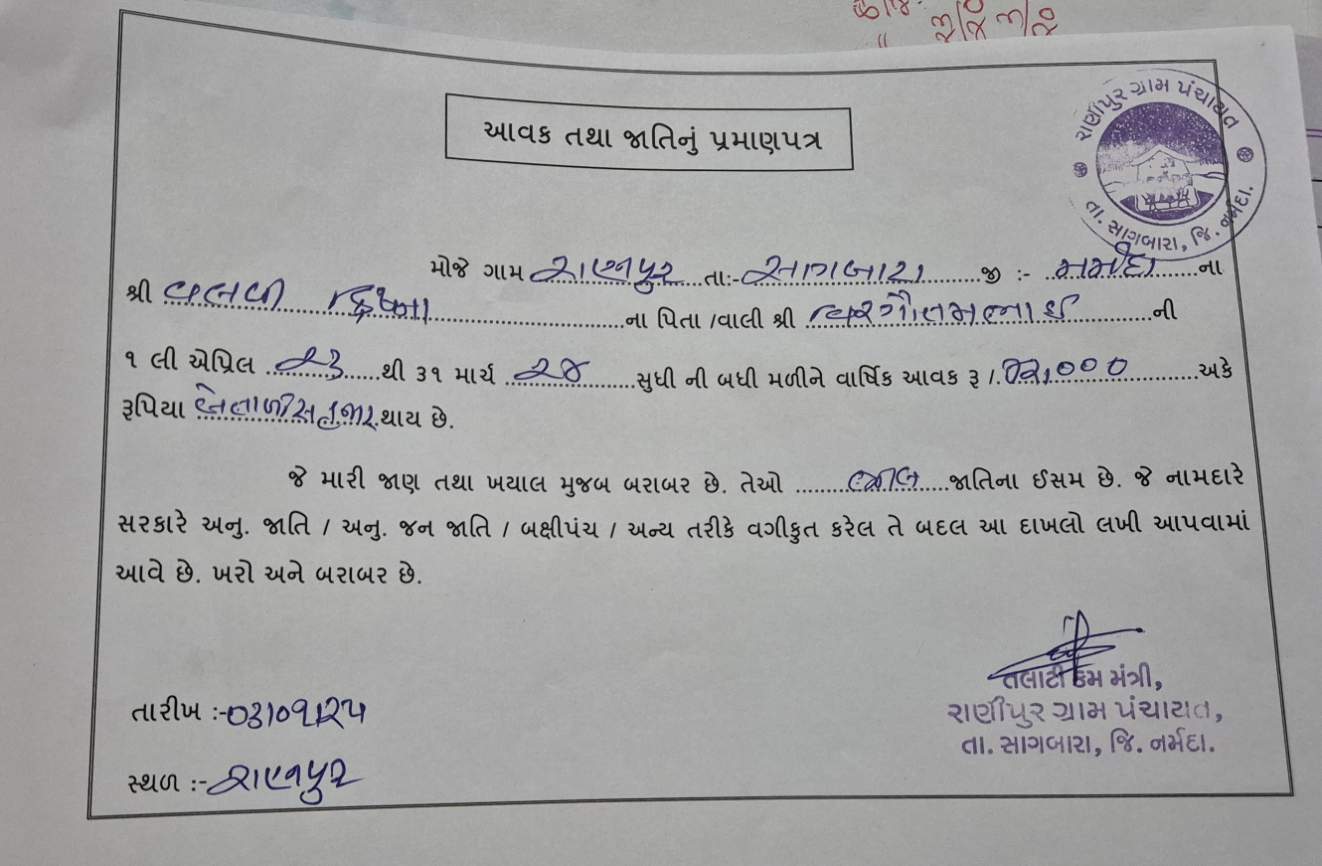 રાણીપુર ગ્રામ પંચાયત
તા. સાગબારા, જિ. નર્મદા.
આવક તથા જાતિનું પ્રમાણપત્ર
મોજે ગામ રાણીપુર તા:- સાગબારા જી :- નર્મદા ના
શ્રી વલવી ના પિતા /વાલી શ્રી ની
૧ લી એપ્રિલ ૨૩ થી ૩૧ માર્ચ ૨૪ સુધી ની બધી મળીને વાર્ષિક આવક રૂ /. ૪૨,૦૦૦ અકે
રૂપિયા બેતાળીસ હજાર થાય છે.
જે મારી જાણ તથા ખયાલ મુજબ બરાબર છે. તેઓ જાતિના ઈસમ છે. જે નામદારે
સરકારે અનુ. જાતિ / અનુ. જન જાતિ / બક્ષીપંચ / અન્ય તરીકે વગીકુત કરેલ તે બદલ આ દાખલો લખી આપવામાં
આવે છે. ખરો અને બરાબર છે.
તલાટી કમ મંત્રી,
રાણીપુર ગ્રામ પંચાયત,
તા. સાગબારા, જિ. નર્મદા.
તારીખ :-
સ્થળ :- રાણીપુર